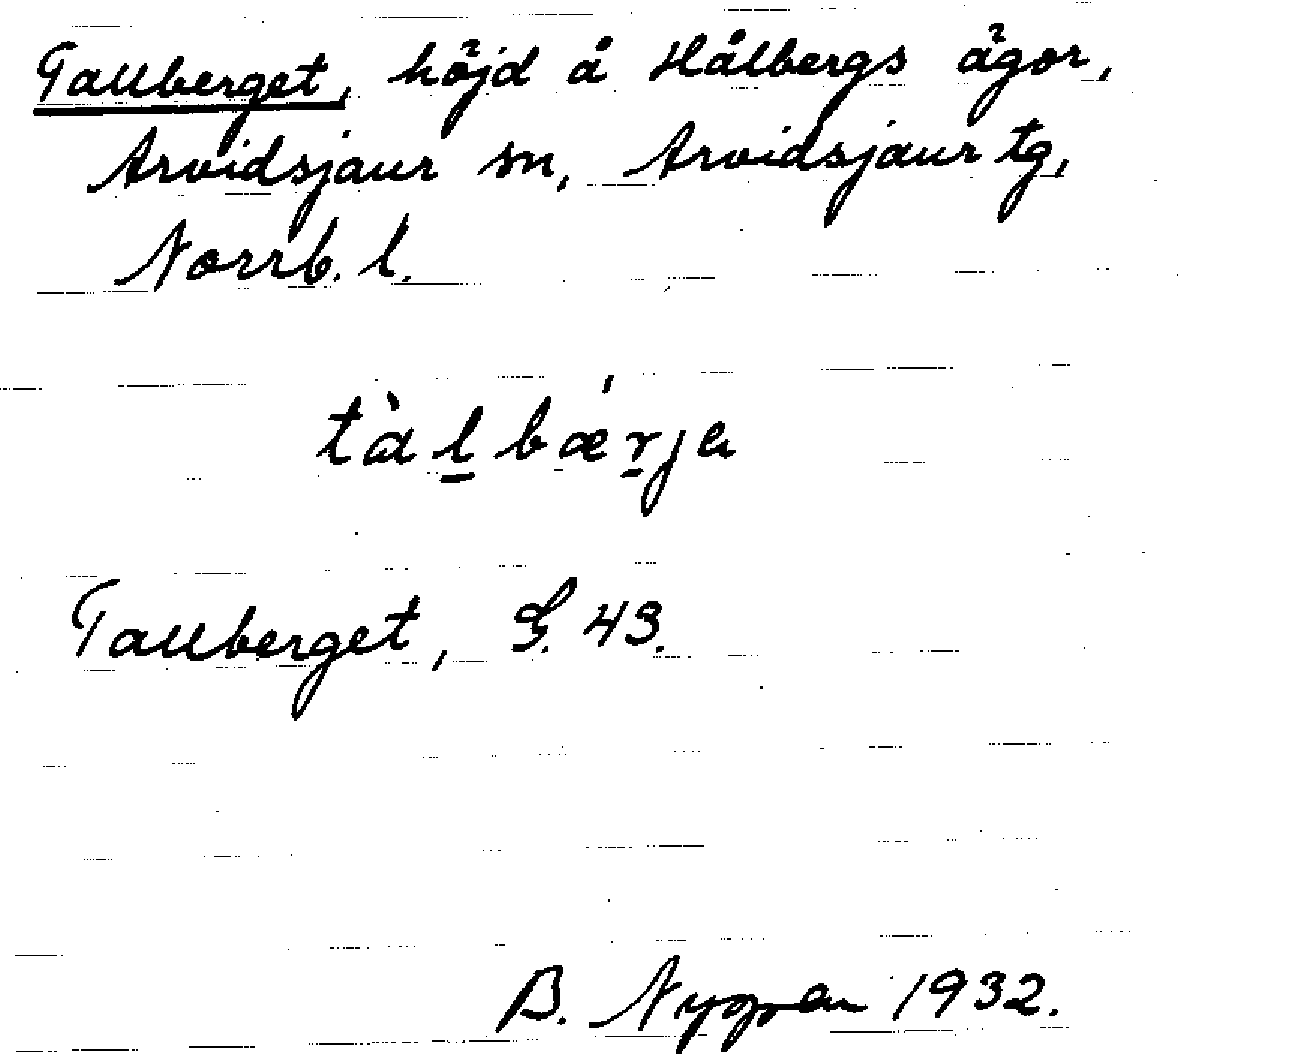 Tallberget, höjd å Hålbergs ägor,
Arvidsjaur sn, Arvidsjaur tg,
Norrb. l.
tàl̲bǽr̲ja
Tallberget, G. 43.
B. Nygren 1932.